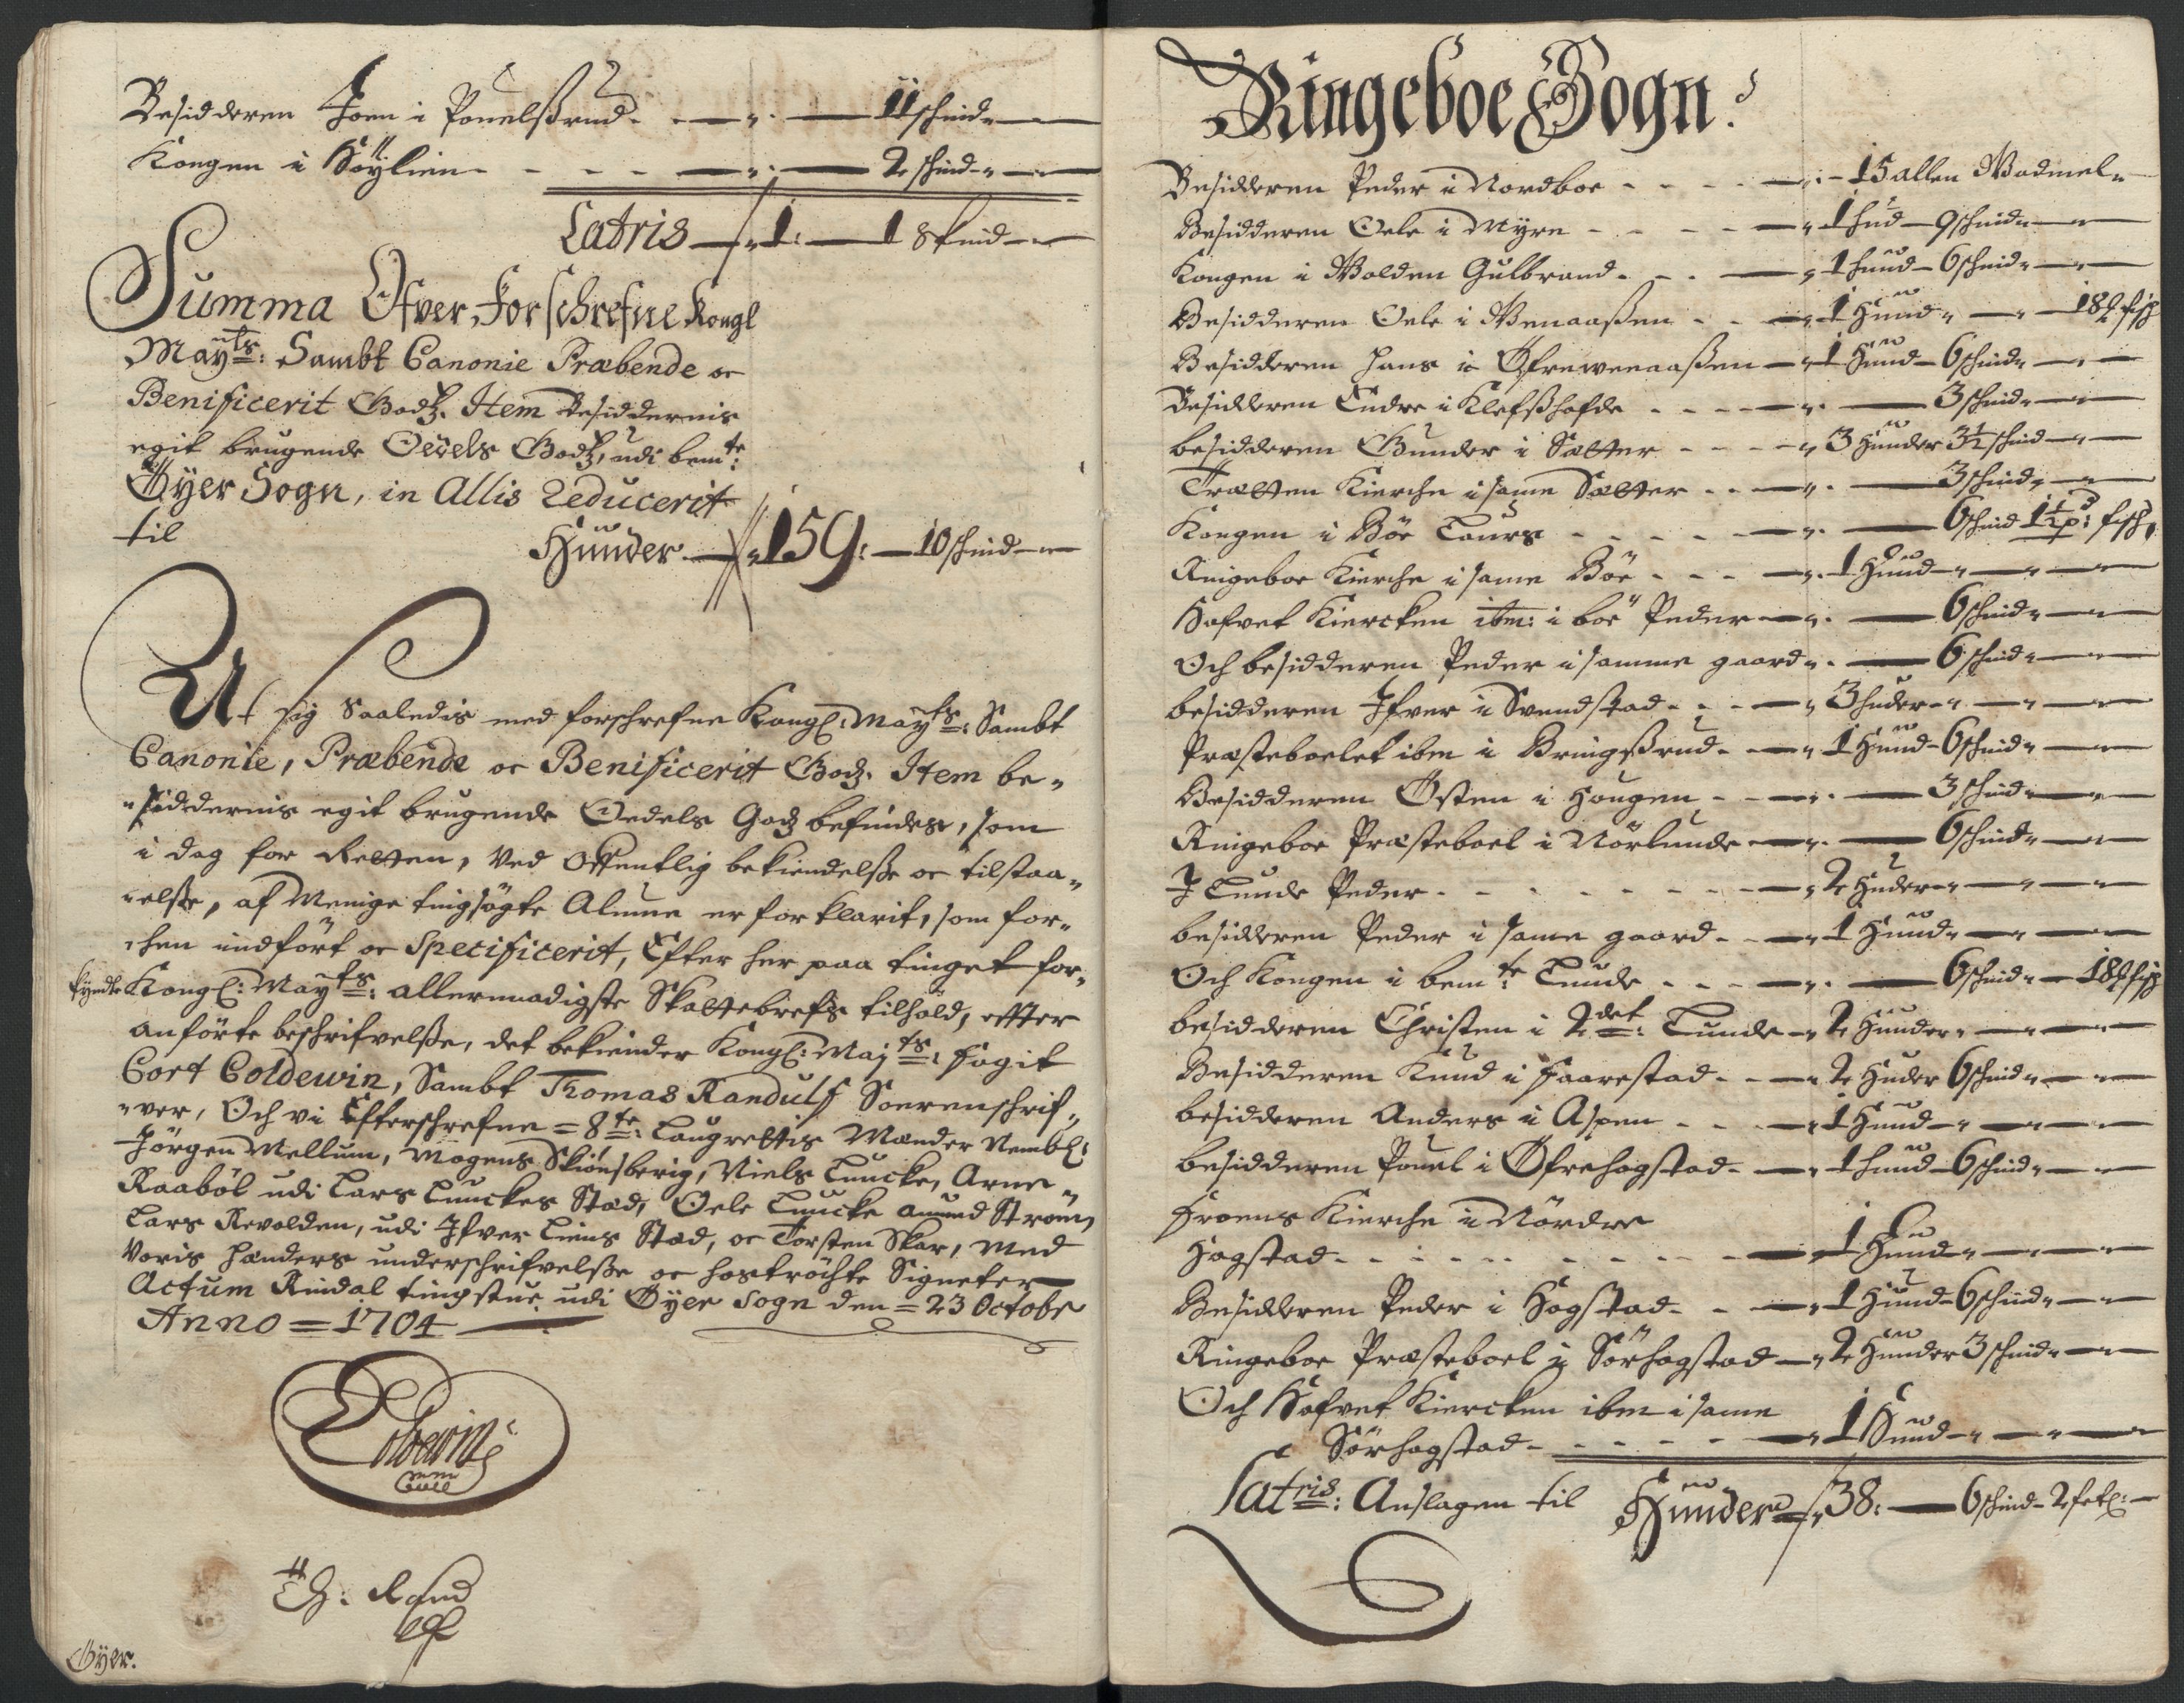 Besidderen Joen i Pouelsßrud - - „ - 11 schind „
Kongen i Höylien - - - - „ - 2 schind „
Latris - „ 1: - 1 Skind
Summa Ofver Forschrefne Kongl
Mayts: Sambt Canonie Præbende oc
Benificerit Godtz. Item Besiddernis
egit brugende Oedels Godtz, udi bemte:
Öyer Sogn, in Allis Reducerit
til
Hünder - „ 159: - 10 schind
At sig Saaledis med forschrefne Kongl: Mayts: Sambt
Canonie, Præbende oc Benificerit Godz. Item be„
„siddernis egit brugende Oedels Godz befindes, som
i dag for Retten, Ved Offentlig bekiendelße oc tilstaa„
„elße, af Menige tingsögte Almue er for klarit, som for„
„hen indfört oc Specificerit, Efter her paa tinget for„
kyndte Kongl: Mayts: allernaadigste Skattebrefs tilhold, efter
anförte beskrifvelße, det bekiender Kongl: Majts: fogit
Cort Coldewin, Sambt Thomas Randulf Sorenschrif„
„ver, Och vi Efterschrefne = 8te: Laugrettis Mænder Nembl:
Jörgen Mellum, Mogens Skiönsberig, Niels Luncke, Arne
Raaböl udi Lars Lunckes Stæd, Oele Luncke Amund Ström,
Lars Revolden, udi Jfver Liens Stæd, oc Torsten Skar, Med
Voris hænders underschrifvelße oc hoströchte Signeter
Actum Rindal tingstue udi Öyer Sogn den = 23 Octobr
Anno = 1704
Coldewin
Th: Rand
ulf
Öyer.
Ringeboe Sogn:
Besidderen Peder i Nordboe - - - - „ - 15 allen Wadmel „
Besidderen Oele i Myre - - - - „ 1 hud - 9 schind „
Kongen i Wolden Gulbrand - - - „ 1 hund - 6 schind „
Besidderen Oele i Wenaaßen - - „ 1 Hund „ - 18 fisch
Besidderen Hans i Öfrewenaaßen - „ 1 Hund - 6 schind „
Besidderen Endre i Klefßhofde - - - „ - 3 schind „
besidderen Gunder i Sætter - - - „ 3 Hunder 3½ schind
Trætten Kierche i same Sætter - - „ - 3 schind „
Kongen i Böe Laurs - - - - „ - 6 schind 1½ pd: fisch,
Ringeboe Kierche i same Böe - - - „ 1 Hund
Hofvet Kiercken ibm: i böe Peder - „ - 6 schind „
Och besidderen Peder i samme gaard „ - 6 schind „
besidderen Jfver i Svendstad - - „ 3 huder
Præsteboelet ibm i Bringsßrud - - „ 1 Hund - 6 schind „
Besidderen Östen i Haugen - - „ - 3 schind „
Ringeboe Præsteboel i Nörlunde - „ - 6 schind „
J Lunde Peder - - - - - - „ 2 Huder
besidderen Peder i same gaard - - „ 1 Hund „
Och Kongen i bemte Lunde - - - „ - 6 schind „ - 18 fisch
besidderen Christen i 2det: Lunde - „ 2 Hunder „
Besidderen Knud i Faarestad - - „ 2 Huder 6 schind „
besidderen Anders i Aspen - - - „ 1 Hund
besidderen Pouel i Öfrehogstad - - „ 1 hund - 6 schind „
Froens Kierche i Nördre
Hogstad - - - - - - - - - „ 1 Hund „
Besidderen Peder i Hogstad - - - „ 1 Hund - 6 schind „
Ringeboe Præsteboel i Sörhogstad - „ 2 Hunder 3 schind „
Och Hofvet Kiercken ibm i same
Sörhogstad - - - - - - „ 1 Hund
Latris: Anslagen til Hünder „ 38: - 6 schind - 2 setl: